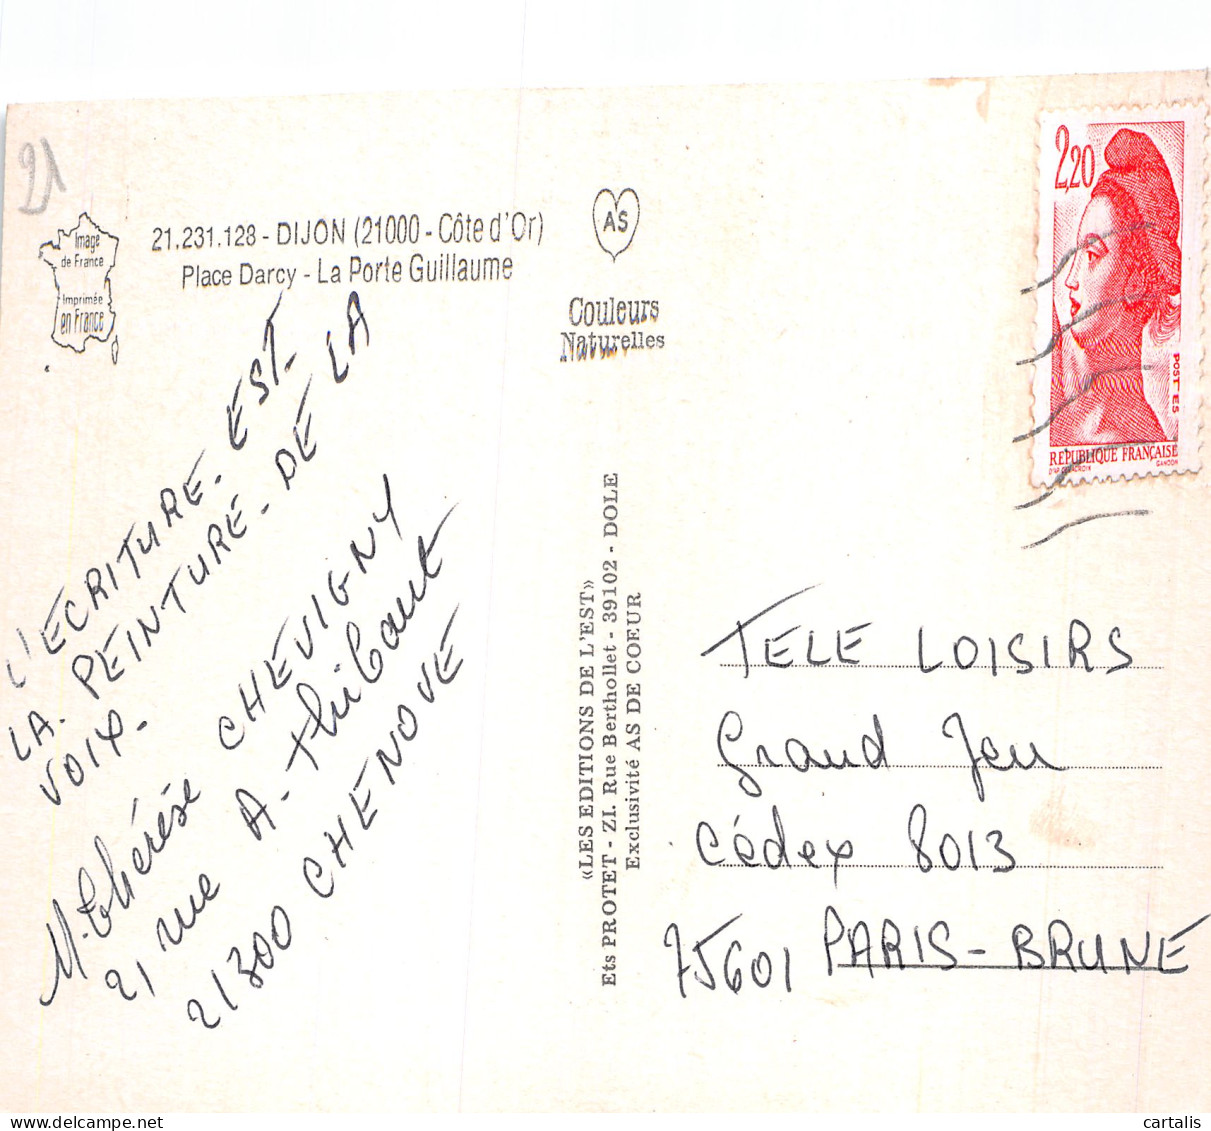 21
Image
de France
Imprimée
en France
21.231.128 - DIJON (21000 - Côte d'Or)
Place Darcy - La Porte Guillaume
AS
Couleurs
Naturelles
2,20
POSTES
REPUBLIQUE FRANÇAISE
D'AP. DELACROIX GANDON
L'ECRITURE. EST.
LA. PEINTURE. DE LA
VOIX.
M. Thérèse CHEVIGNY
21 rue A. Thibaut
21300 CHENOVE
«LES EDITIONS DE L'EST»
Ets PROTET - ZI. Rue Berthollet - 39102 - DOLE
Exclusivité AS DE COEUR
TELE LOISIRS
Grand Jeu
Cédex 8013
75601 PARIS-BRUNE
delcampe.net
cartalis